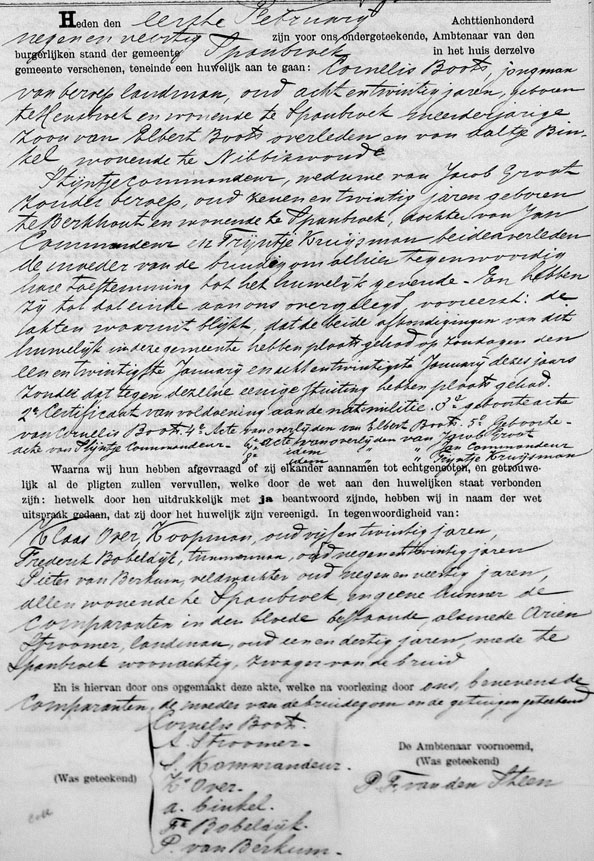 Heden den eerste February Achttienhonderd
negen en veertig zijn voor ons ondergeteekende, Ambtenaar van den
burgerlijken stand der gemeente Spanbroek in het huis derzelve
gemeente verschenen, teneinde een huwelijk aan te gaan: Cornelis Boots, jongman
van beroep landman, oud acht en twintig jaren, geboren
te Hensbroek en wonende te Spanbroek meerderjarige
zoon van Elbert Boots overleden en van Aaltje Bin-
kel wonende te Nibbixwoude
Stijntje Commandeur, weduwe van Jacob Groot
zonder beroep, oud en twintig jaren geboren
te Berkhout en wonende te Spanbroek, dochter van Jan
Commandeur en Trijntje Kruijsman beide overleden
de moeder van de bruidegom alhier tegenwoordig
hare toestemming tot het huwelijk gevende. En hebben
zij tot dat einde aan ons overgelegd vooreerst: de
akten waaruit blijkt, dat de beide afkondigingen van dit
huwelijk in deze gemeente hebben plaats gehad op zondagen den
een en twintigste January en acht en twintigste January dezes jaars
zonder dat tegen dezelve eenige stuiting hebben plaats gehad.
2e Certificaat van voldoening aan de nationale militie. 3e geboorte acte
van Cornelis Boots. 4e Acte van overlijden van Elbert Boots. 5e Geboorte-
acte van Stijntje Commandeur. 6e acte van overlijden van Jacob Groot
idem " Jan Commandeur
8e idem " Trijntje Kruijsman
Waarna wij hun hebben afgevraagd of zij elkander aannamen tot echtgenooten, en getrouwe-
lijk al de pligten zullen vervullen, welke door de wet aan den huwelijken staat verbonden
zijn: hetwelk door hen uitdrukkelijk met ja beantwoord zijnde, hebben wij in naam der wet
uitspraak gedaan, dat zij door het huwelijk zijn vereenigd. In tegenwoordigheid van:
Klaas Over, Koopman, oud vijf en twintig jaren,
Frederik Bobeldijk, timmerman, oud negen en twintig jaren
Pieter van Berkum, veldwachter oud negen en veertig jaren,
allen wonende te Spanbroek en geene hunner de
Comparanten in den bloede bestaande, alsmede Arien
Stroomer, landman, oud een en dertig jaren, mede te
Spanbroek woonachtig, zwager van de bruid
En is hiervan door ons opgemaakt deze akte, welke na voorlezing door ons, benevens de
Comparanten, de moeder van de bruidegom en de getuigen geteekend
Cornelis Boots.
A. Stroomer.
S. Kommandeur.
Ks Over.
a. binkel.
Fk Bobeldijk.
P. van Berkum.
(Was geteekend)
De Ambtenaar voornoemd,
(Was geteekend)
P. F. van den Steen